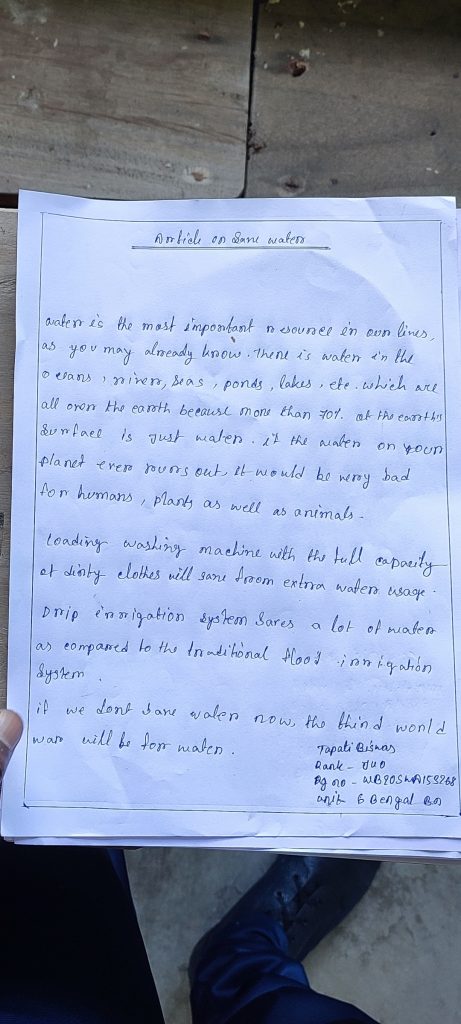 Article on Save water
water is the most important resource in our lives,
as you may already know. There is water in the
oceans, rivers, seas, ponds, lakes, etc. which are
all over the earth because more than 70% of the earth's
surface is just water. if the water on your
planet ever rouns out, it would be very bad
for humans, plants as well as animals.
Loading washing machine with the full capacity
of dirty clothes will save from extra water usage.
Drip irrigation system saves a lot of water
as compared to the traditional flood irrigation
System.
if we dont save water now, the third world
war will be for water.
Tapati Biswas
Rank - JUO
Rg no - WB20SWA158268
unit 6 Bengal Bn